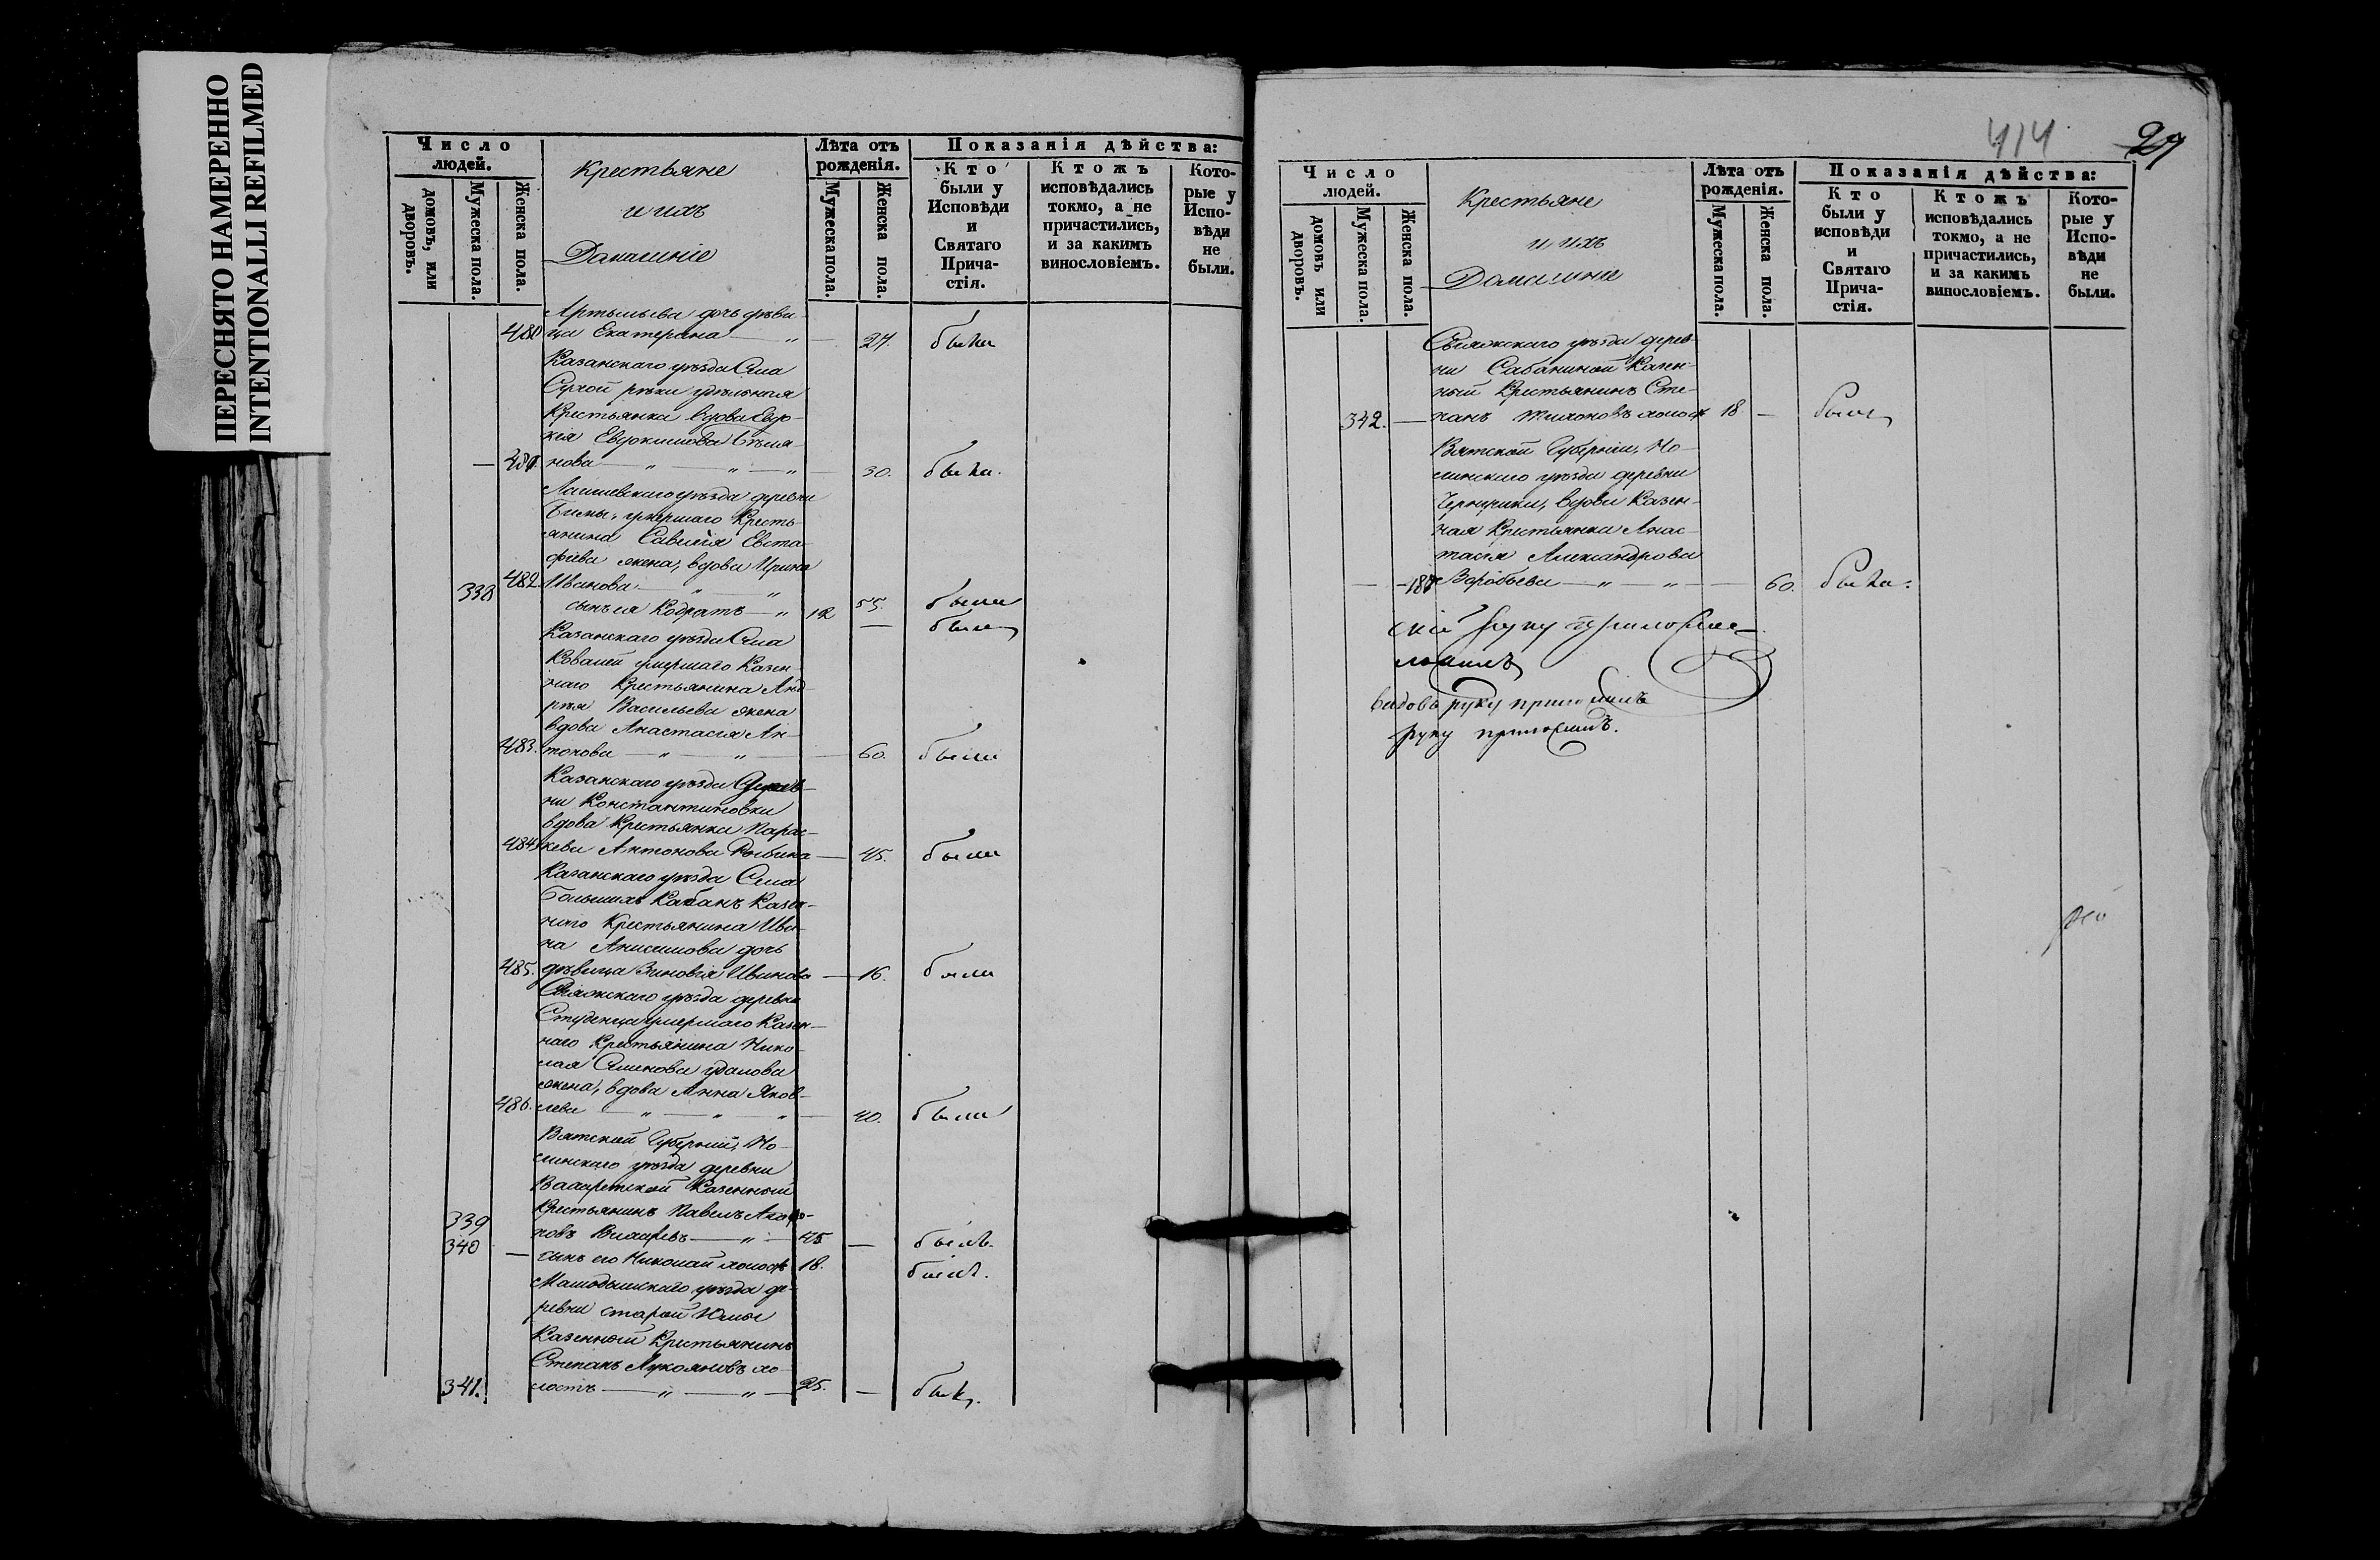 ПЕРЕСНЯТО НАМЕРЕННО
INTENTIONALLI REFILMED
Число людей.
домовъ, или дворовъ.
Мужеска пола.
Женска пола.
Крестьяне
и ихъ
Домашніе
Лѣта отъ рожденія.
Мужеска пола.
Женска пола.
Показанія дѣйства:
Кто были у Исповѣди и Святаго Прича-стія.
Ктожъ исповѣдались токмо, а не причастились, и за какимъ винословіемъ.
Кото-рые у Испо-вѣди не были.
дочь дѣви-
480 ца Екатерина — " — 27. была
Казанскаго уѣзда Села
Сухой рѣки удѣльная
Крестьянка вдова Евдо-
кія Евдокимова
— 481. нова — " — " — " — 30. была.
Лаишевскаго уѣзда деревни
умершаго Кресть-
янина Савелія Евста-
фіева жена, вдова Ирина
482. Иванова — " — " 55. была
338 сынъ ея Кодратъ — " 12 — былъ
Казанскаго уѣзда Села
Ковалей умершаго Казен-
наго Крестьянина Анд-
рея Васильева жена
вдова Анастасія Ан-
483. тонова — " — " — 60. была
Казанскаго уѣзда Дерев-
ни Константиновки
вдова Крестьянка Парас-
484 кева Антонова Рыбина — 45. была
Казанскаго уѣзда Села
Большихъ Кабанъ Казен-
наго Крестьянина Ива-
на Анисимова дочь
485. дѣвица Зиновія Иванова — 16. была
Свіяжскаго уѣзда деревни
Студенца умершаго Казен-
наго Крестьянина Нико-
лая Семенова Удалова
жена, вдова Анна Яков-
486. лева — " — " — " — 40. была
Вятской Губерніи, Но-
линскаго уѣзда деревни
Казенный
339 Крестьянинъ Павелъ
новъ Вихаревъ — " — 45 — былъ.
340 — сынъ его Николай холостъ 18. былъ.
Мамадышскаго уѣзда де-
ревни старой Юмьи
Казенный Крестьянинъ
Степанъ Лукояновъ хо-
341. лостъ — " — " — 25. — былъ.
414 27
Число людей.
домовъ или дворовъ.
Мужеска пола.
Женска пола.
Крестьяне
и ихъ
Домашни
Лѣта отъ рожденія.
Мужеска пола.
Женска пола.
Показанія дѣйства:
Кто были у исповѣди и Святаго Прича-стія.
Ктожъ исповѣдались токмо, а не причастились, и за какимъ винословіемъ.
Кото-рые у Испо-вѣди не были.
Свіяжскаго уѣзда дерев-
ни Сабаниной Казен-
ный Крестьянинъ Сте-
342. — панъ Тихоновъ холост 18 — былъ
Вятской Губерніи, Но-
линскаго уѣзда деревни
вдова Казен-
ная Крестьянка Анас-
тасія Александрова
— — 487 Воробьева — " — " — — 60. была.
скій руку приложилъ
руку приложилъ
руку приложилъ.